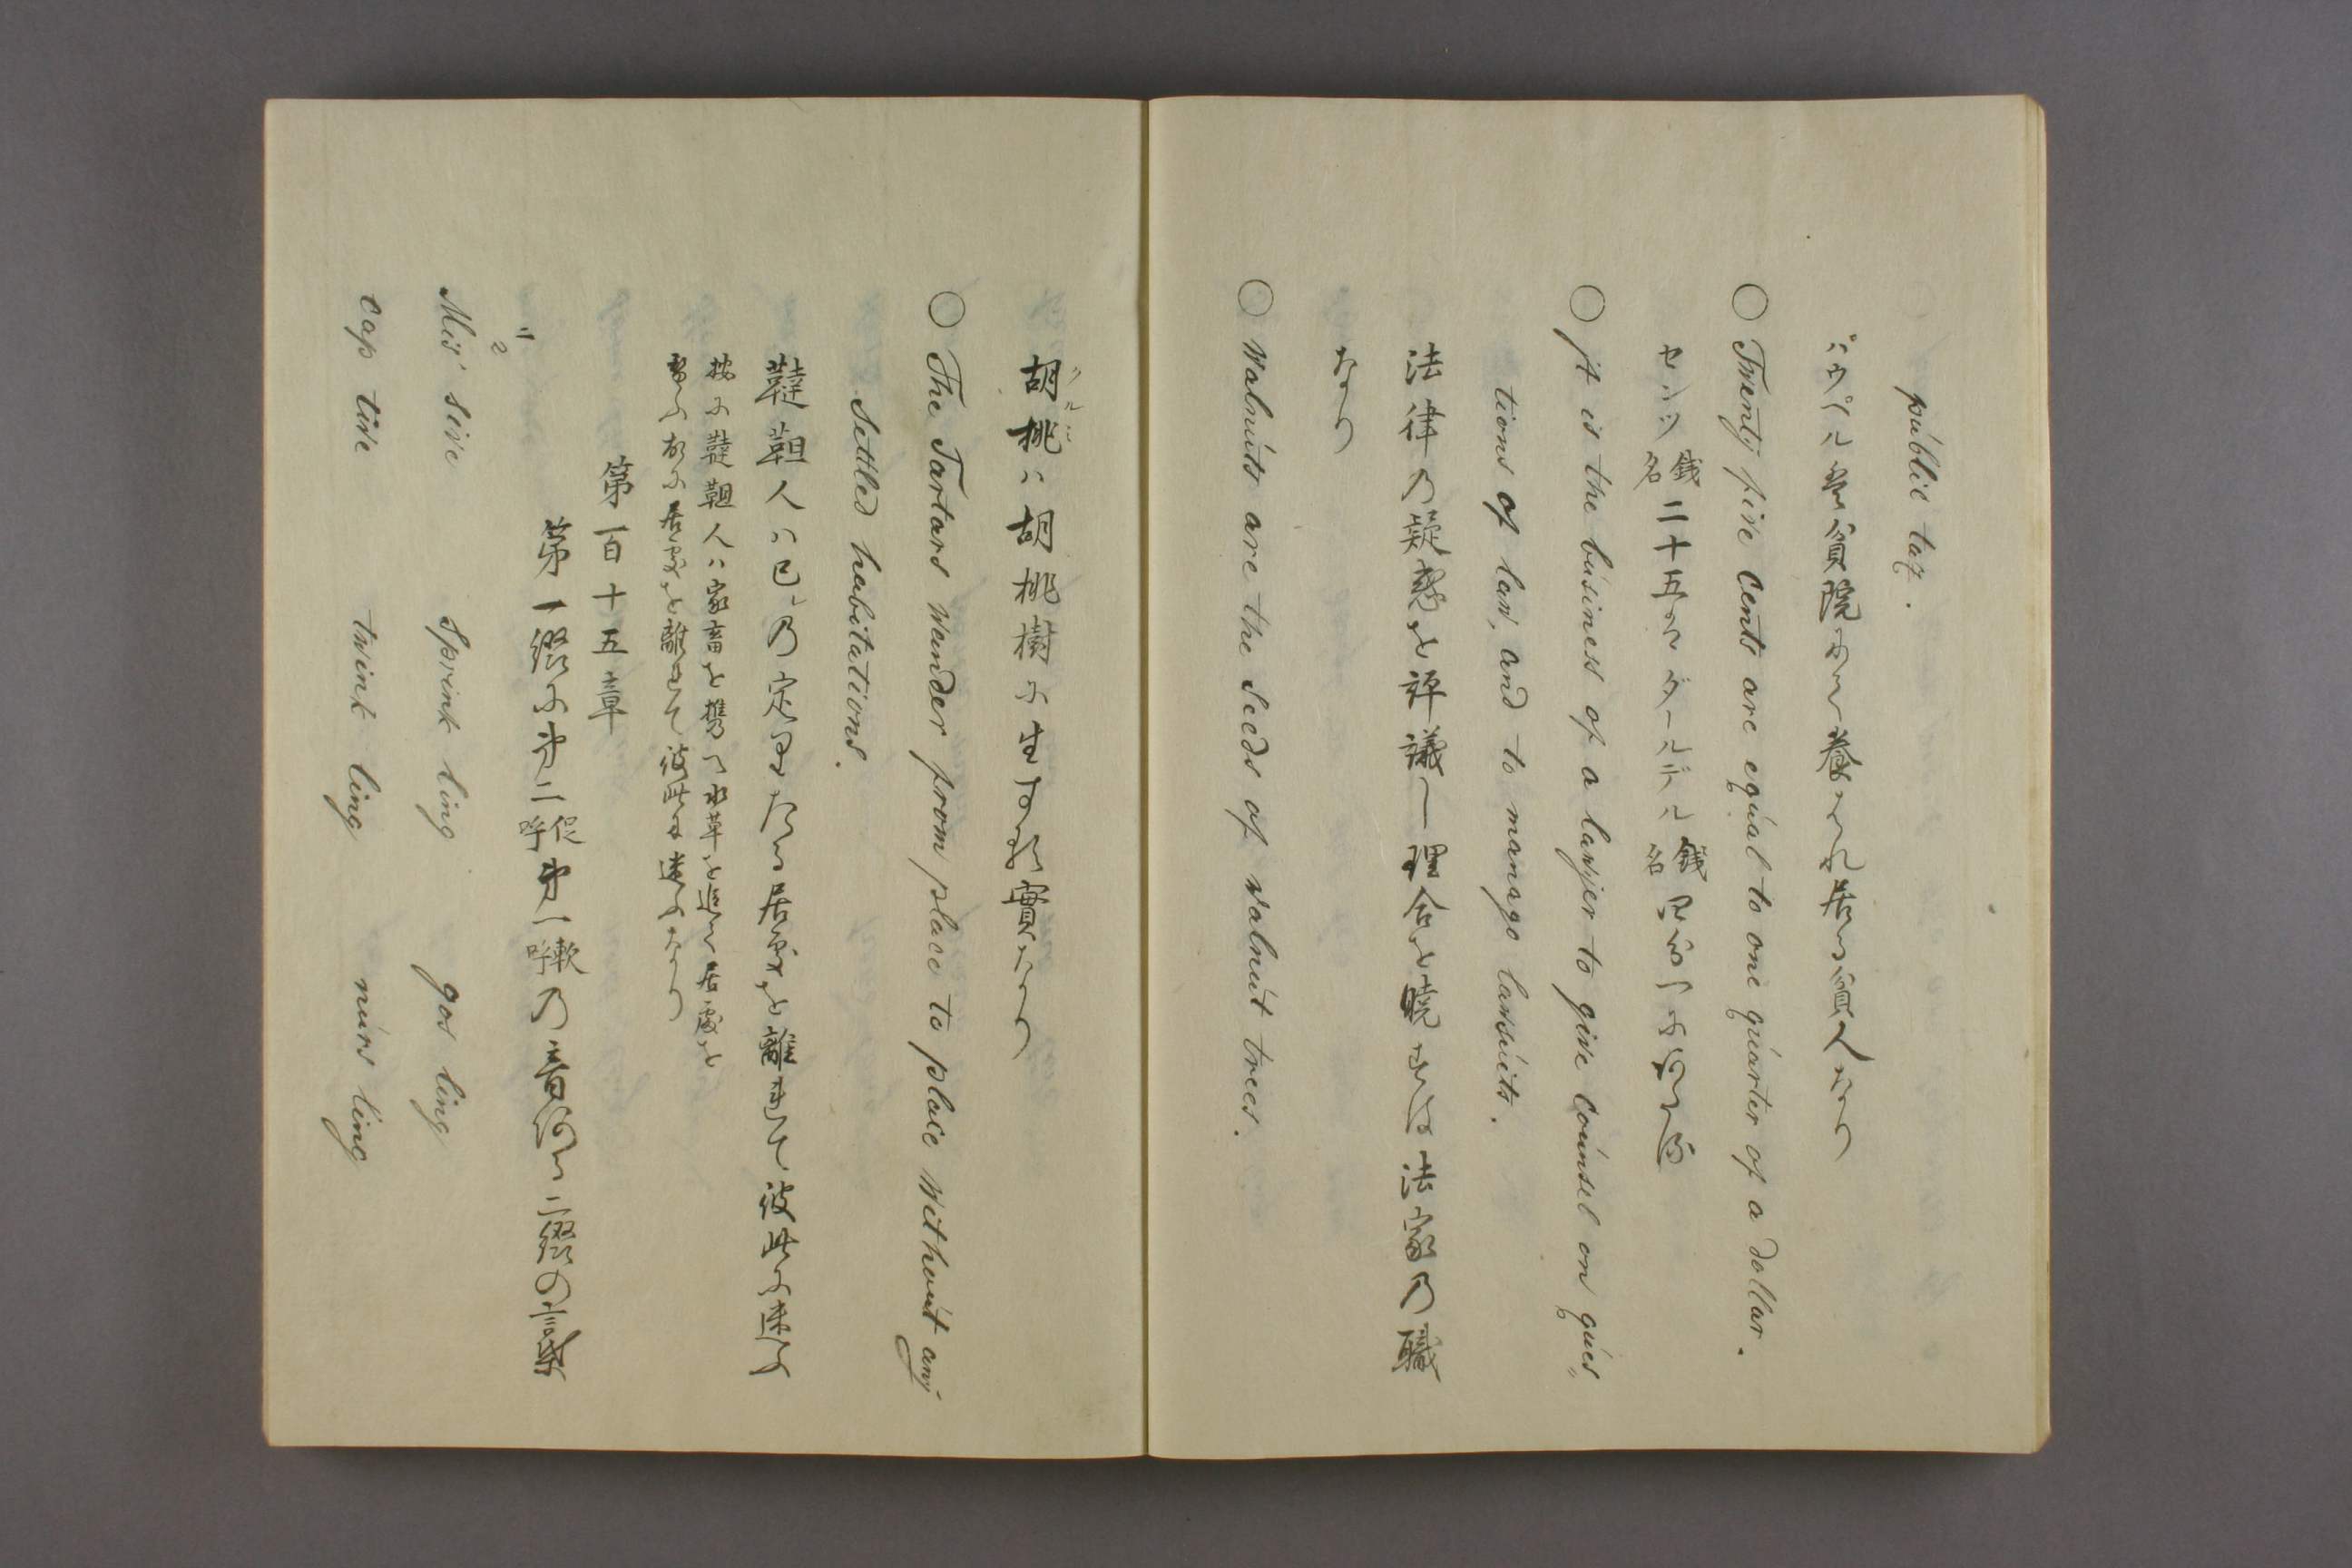 public tax.
パウペル 養貧院にて養はれ居る貧人なり
○ Twenty five Cents are equal to one quarter of a dollar.
センツ 銭名 二十五ハ ダールデル 銭名 四分一に
○ it is the business of a lawyer to give Counsel on ques„
tions of law, and to manage lawsuits.
法律乃疑惑を評議し理合を暁すは法家乃職
なり
○ Walnuts are the seeds of walnut trees.
胡桃ハ胡桃樹に生する實なり
クルミ
○ The Tartars wander from place to place without any
settled habitations.
韃靼人ハ已レ乃定りたる居處を離れて彼此に迷ふ
按に韃靼人ハ家畜を携へ水草を追て居處を
故に居處を離れて彼此に迷ふなり
第百十五章
第一綴に第二促呼第一軟呼乃音何る二綴の言葉
ニ
2
Mis' sive Sprink ling gos ling
Cap tive twink ling nurs ling